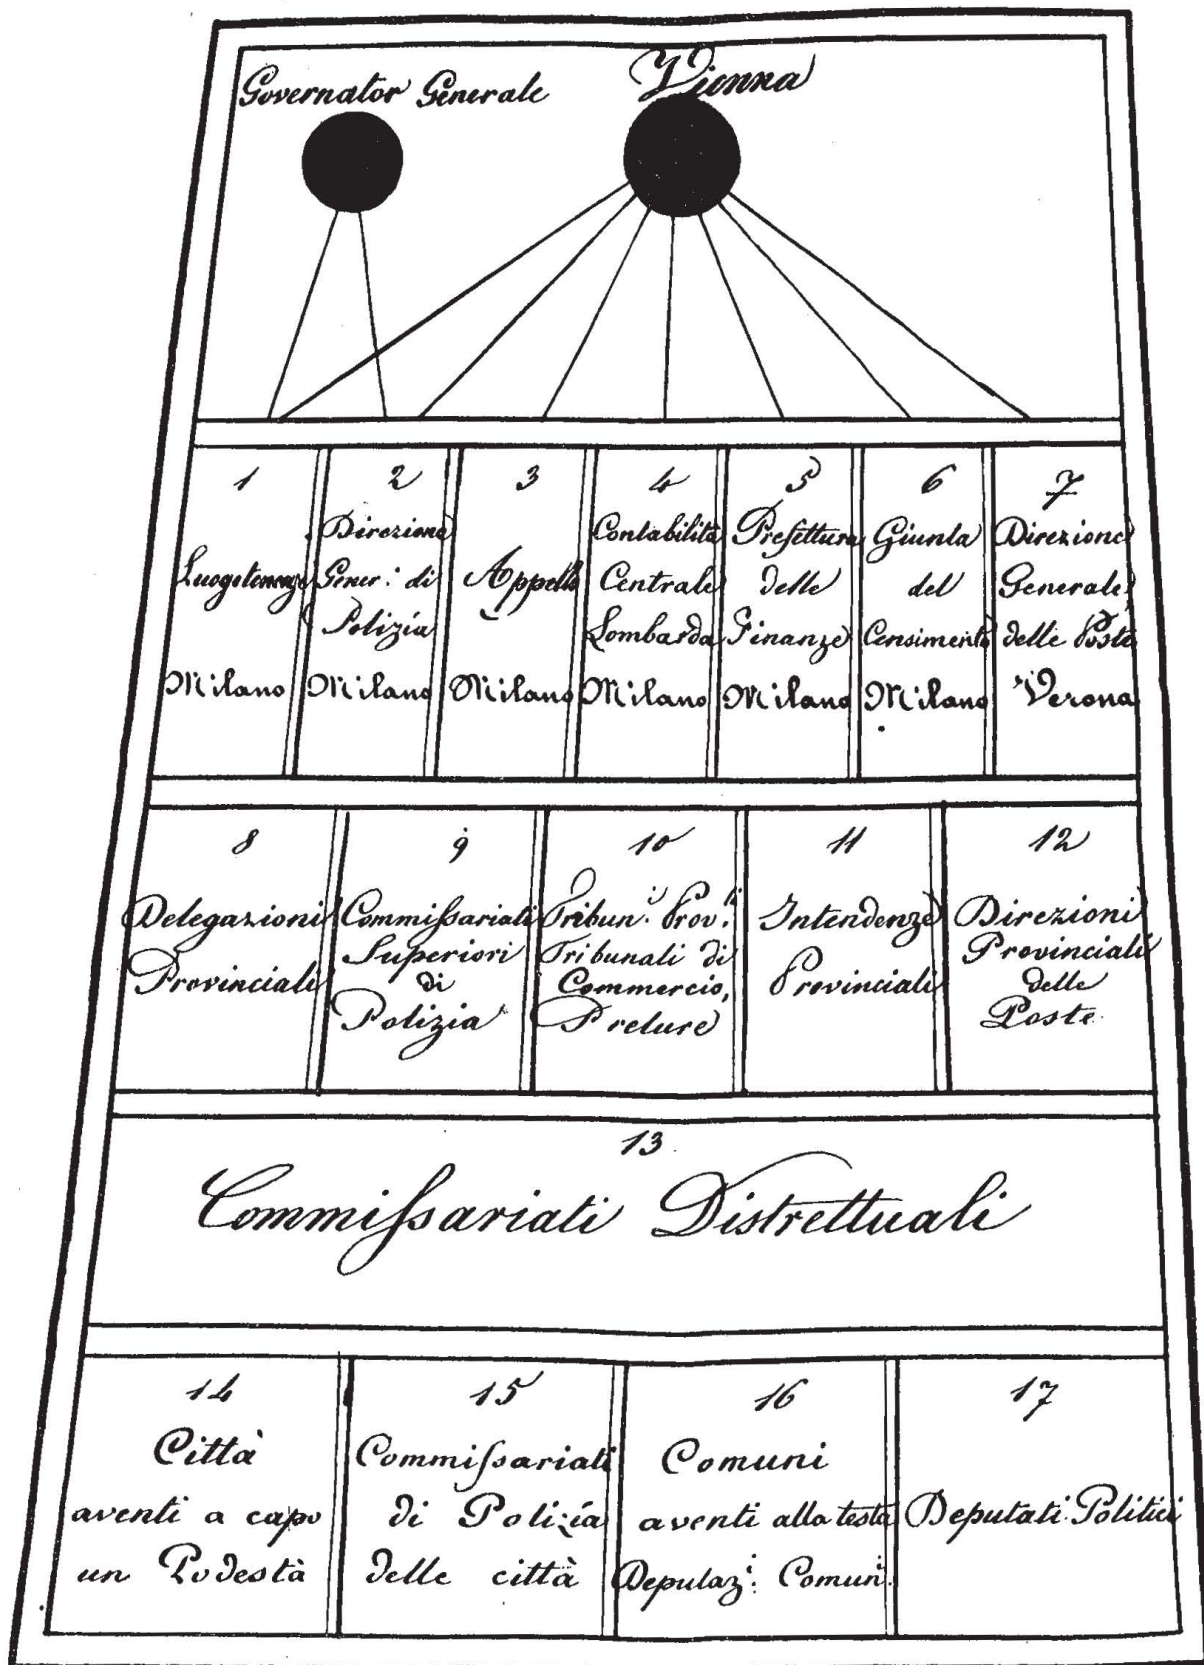 Governator Generale
Vienna
1
Luogotenenza
Milano
2
Direzione
Gener.: di
Polizía
Milano
3
Appello
Milano
4
Contabilità
Centrale
Lombarda
Milano
5
Prefettura
delle
Finanze
Milano
6
Giunta
del
Censimento
Milano
7
Direzione
Generale
delle Poste
Verona
8
Delegazioni
Provinciali
9
Commiſsariati
Superiori
di
Polizia
10
Tribun.i Prov.li
Tribunali di
Commercio,
Preture
11
Intendenze
Provinciali
12
Direzioni
Provinciali
delle
Poste
13
Commiſsariati Distrettuali
14
Città
aventi a capo
un Podestà
15
Commiſsariati
di Polizía
delle città
16
Comuni
aventi alla testa
Deputaz.i Comun.i
17
Deputati Politici